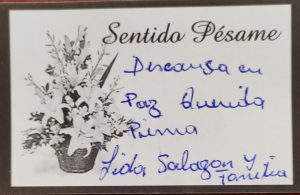 Sentido Pésame
Descansa en
Paz Querida
Prima
Lida Salazar y
Familia